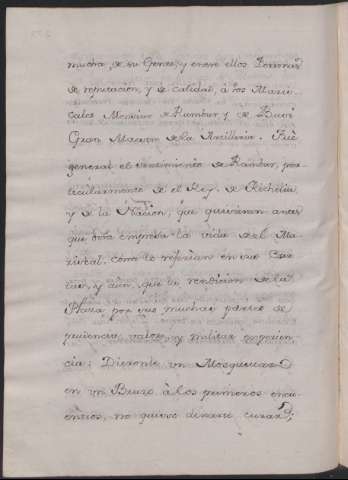 mucha, de su Gente, y entre ellos Personas
de reputacion, y de calidad, á los Maris-
cales Monsiur de Rambur, y de
Gran Maestre de la Artilleria. Fué
general el sentimiento de Rambur, par-
ticularmente de el Rey, de Richiliu,
y de la Nacion, que quisieran antes
que otra empresa la vida de el Ma-
riscal, como lo referian en sus
y aun, que la rendicion de la
Plaza, por sus muchas partes de
prudencia, valor, y militar experien-
cia: Dieronle un Mosquetazo
en un Brazo á los primeros encu-
entros, no quiso dexarse curar;